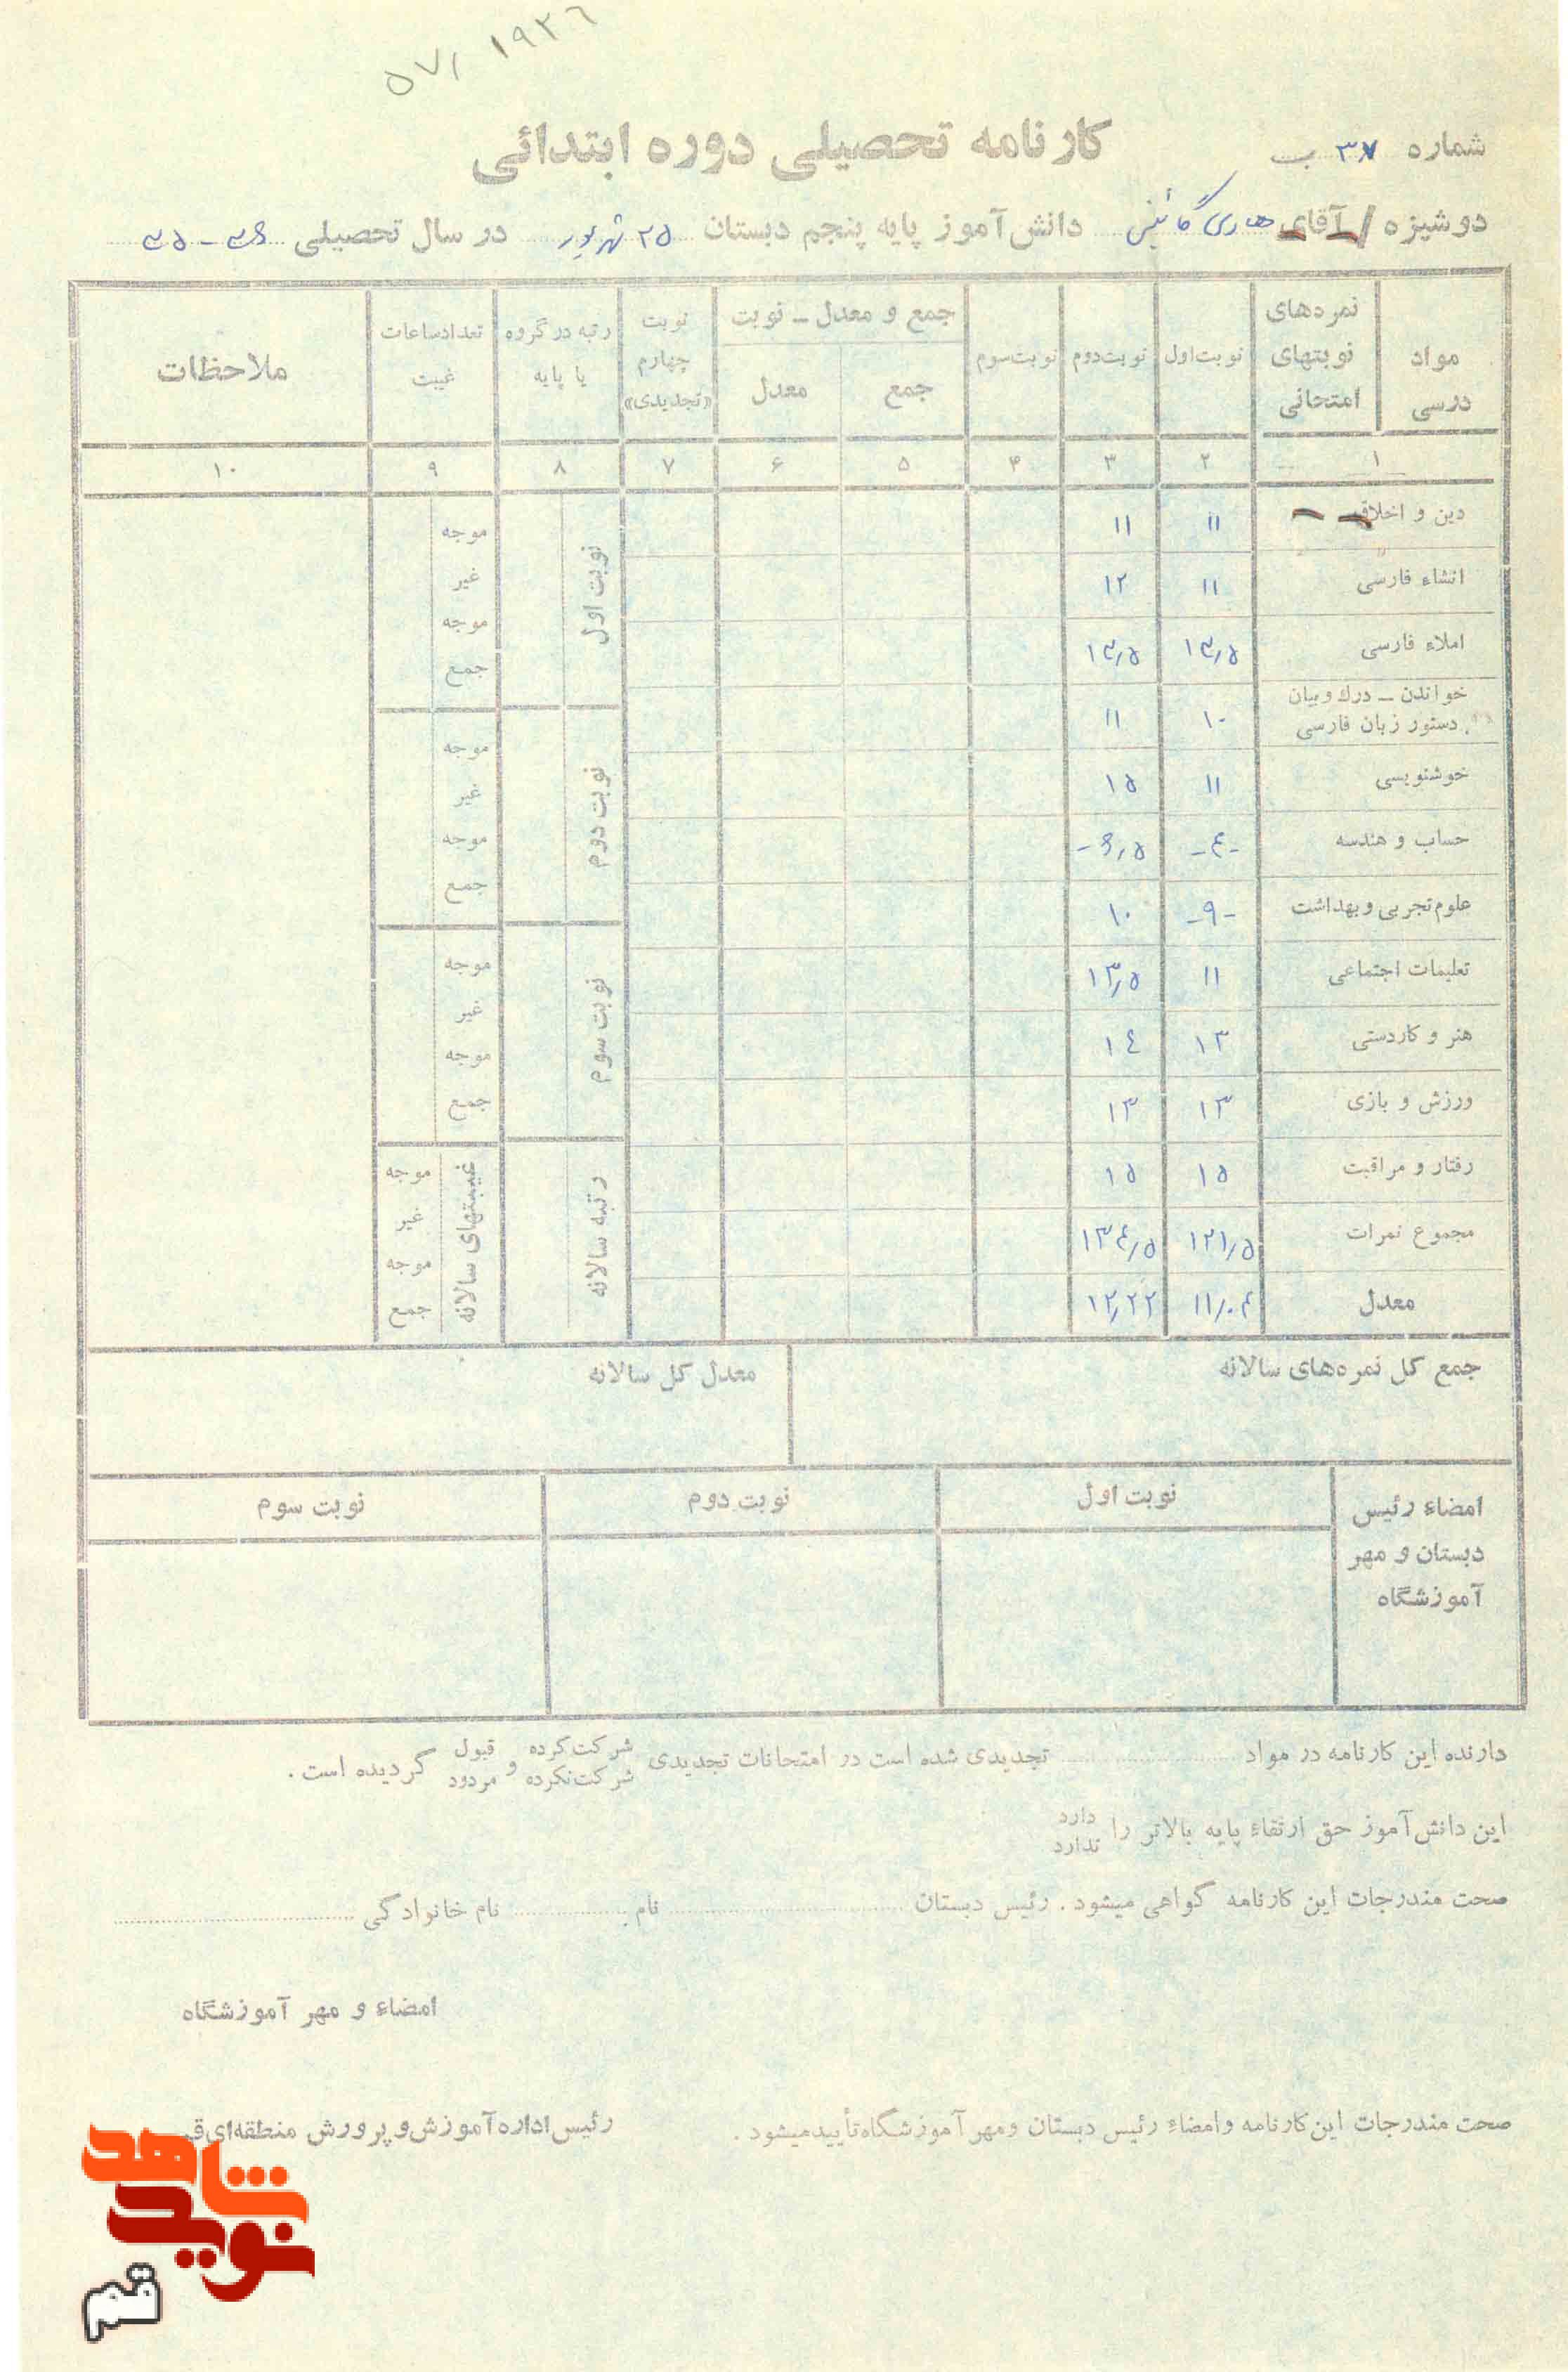 ۵۷/ ۱۹۳۶
کارنامه تحصیلی دوره ابتدائی
شماره ۳۷ ب
دوشیزه / آقای هادی دانش‌آموز پایه پنجم دبستان ۲۵ شهریور در سال تحصیلی ۳۶ - ۳۵
مواد درسی
نمره‌های نوبتهای امتحانی
نوبت اول
نوبت دوم
نوبت سوم
جمع و معدل - نوبت
جمع
معدل
نوبت چهارم «تجدیدی»
رتبه در گروه یا پایه
تعداد ساعات غیبت
ملاحظات
۱ ۲ ۳ ۴ ۵ ۶ ۷ ۸ ۹ ۱۰
دین و اخلاق ۱۱ ۱۱
انشاء فارسی ۱۱ ۱۲
املاء فارسی ۱۳/۵ ۱۳/۵
خواندن - درک و بیان
دستور زبان فارسی ۱۰ ۱۱
خوشنویسی ۱۱ ۱۵
حساب و هندسه -۴- ۶/۵-
علوم تجربی و بهداشت -۹- ۱۰
تعلیمات اجتماعی ۱۱ ۱۳/۵
هنر و کاردستی ۱۳ ۱۴
ورزش و بازی ۱۳ ۱۳
رفتار و مراقبت ۱۵ ۱۵
مجموع نمرات ۱۲۱/۵ ۱۳۴/۵
معدل ۱۱/۰۴ ۱۲/۲۲
نوبت اول
موجه
غیر موجه
جمع
نوبت دوم
موجه
غیر موجه
جمع
نوبت سوم
موجه
غیر موجه
جمع
رتبه سالانه
غیبتهای سالانه
موجه
غیر موجه
جمع
جمع کل نمره‌های سالانه
معدل کل سالانه
امضاء رئیس دبستان و مهر آموزشگاه
نوبت اول
نوبت دوم
نوبت سوم
دارنده این کارنامه در مواد تجدیدی شده است در امتحانات تجدیدی شرکت کرده شرکت نکرده و قبول مردود گردیده است .
این دانش‌آموز حق ارتقاء پایه بالاتر را دارد ندارد
صحت مندرجات این کارنامه گواهی میشود . رئیس دبستان نام نام خانوادگی
امضاء و مهر آموزشگاه
صحت مندرجات این کارنامه و امضاء رئیس دبستان و مهر آموزشگاه تأیید میشود .
رئیس اداره آموزش و پرورش منطقه‌ای
نوید شاهد
قم